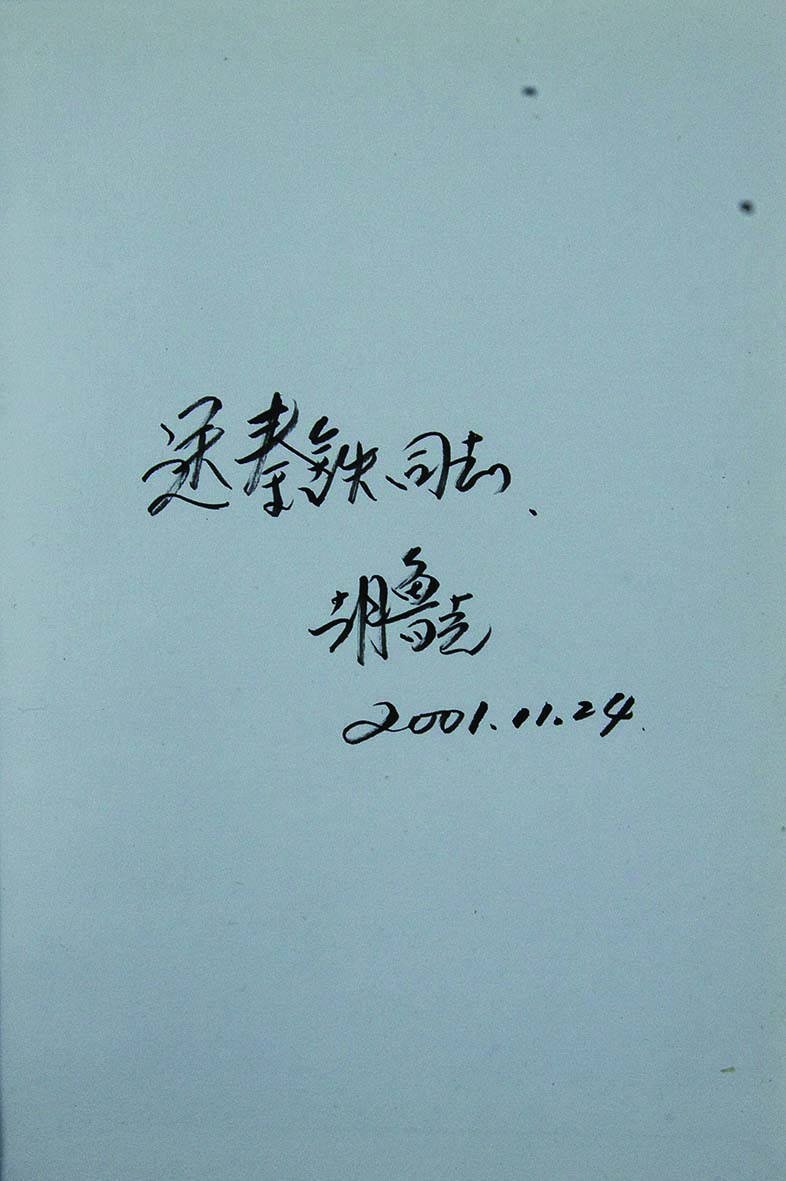 送秦铁同志、
胡鲁克
2001.11.24.